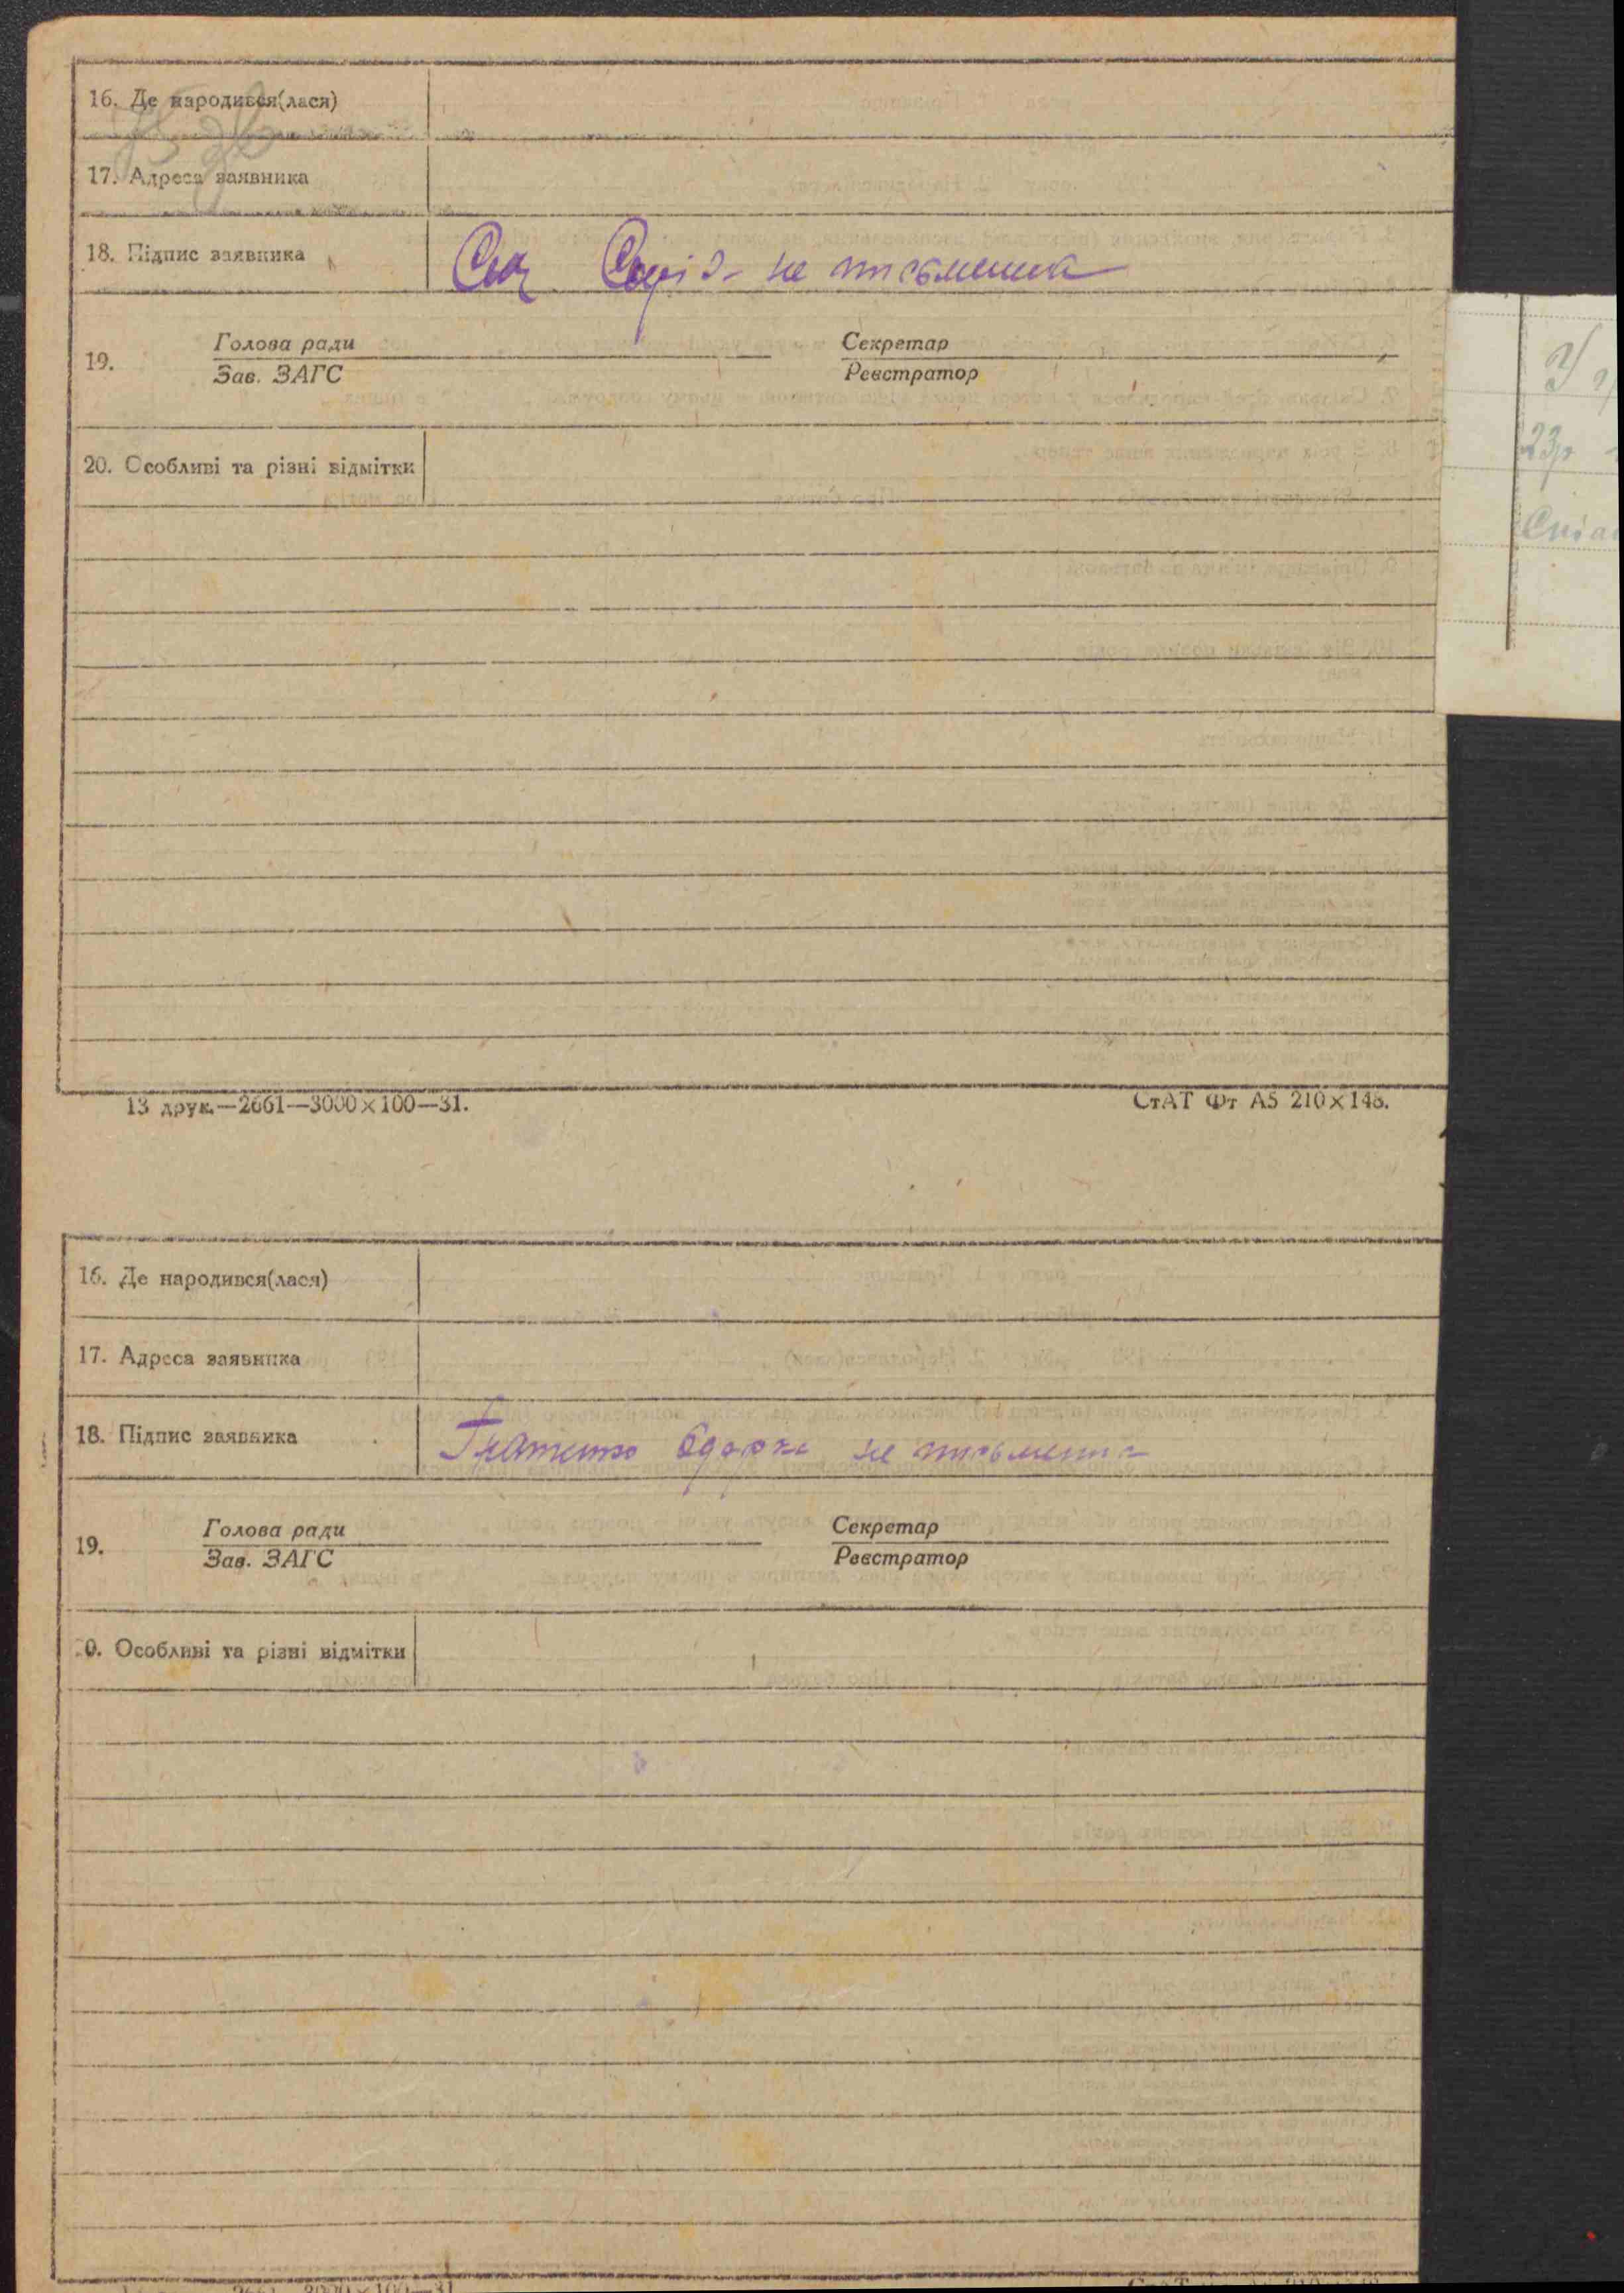 16. Де народився(лася)
17. Адреса заявника
18. Підпис заявника
не письменна
19. Голова ради
Зав. ЗАГС
Секретар
Реєстратор
20. Особливі та різні відмітки
13 друк.—2661—3000×100—31.
СтАТ Фт А5 210×148.
16. Де народився(лася)
17. Адреса заявника
18. Підпис заявника
Гнатенко Одарка не письменна
19. Голова ради
Зав. ЗАГС
Секретар
Реєстратор
0. Особливі та різні відмітки
23р